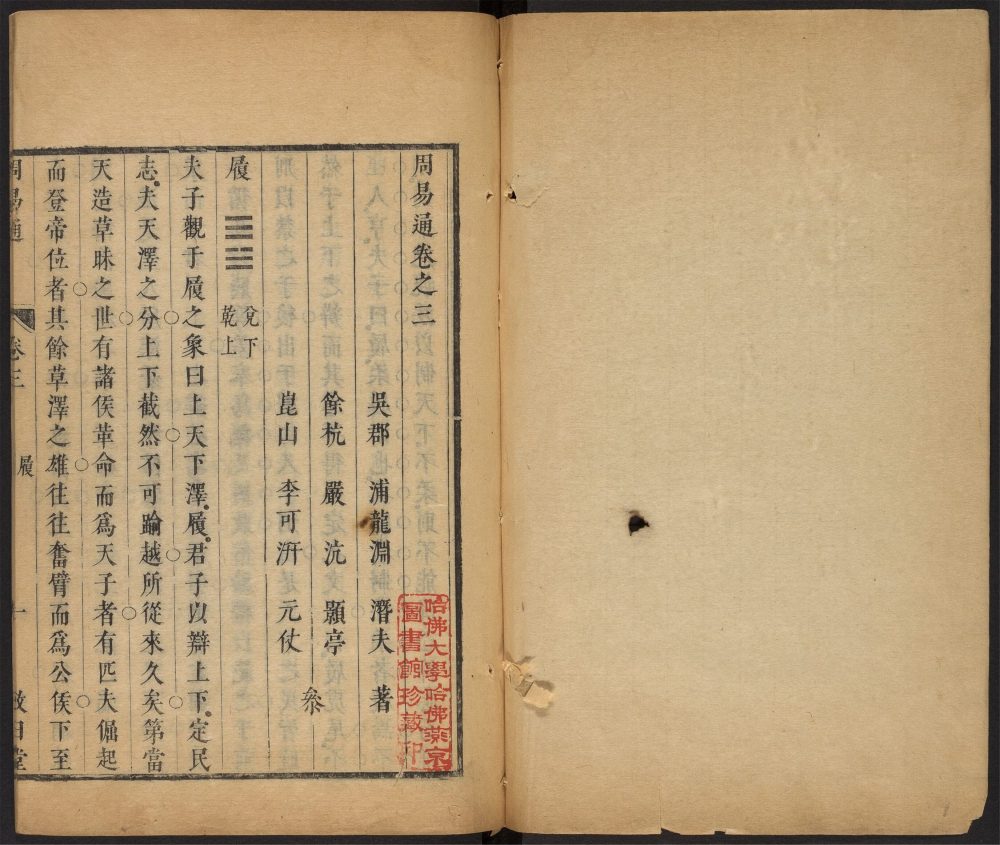 周易通卷之三
吳郡 浦龍淵 潛夫 著
餘杭 嚴沆 顥亭
崑山 李可汧 元仗
叅
履 兌下
乾上
夫子觀于履之象曰上天下澤履君子以辯上下定民
志夫天澤之分上下截然不可踰越所從來久矣第當
天造草昧之世有諸侯革命而爲天子者有匹夫倔起
而登帝位者其餘草澤之雄往往奮臂而爲公侯下至
周易通 卷三 履 一 敬日堂
哈佛大學哈佛燕京
圖書館珍藏印